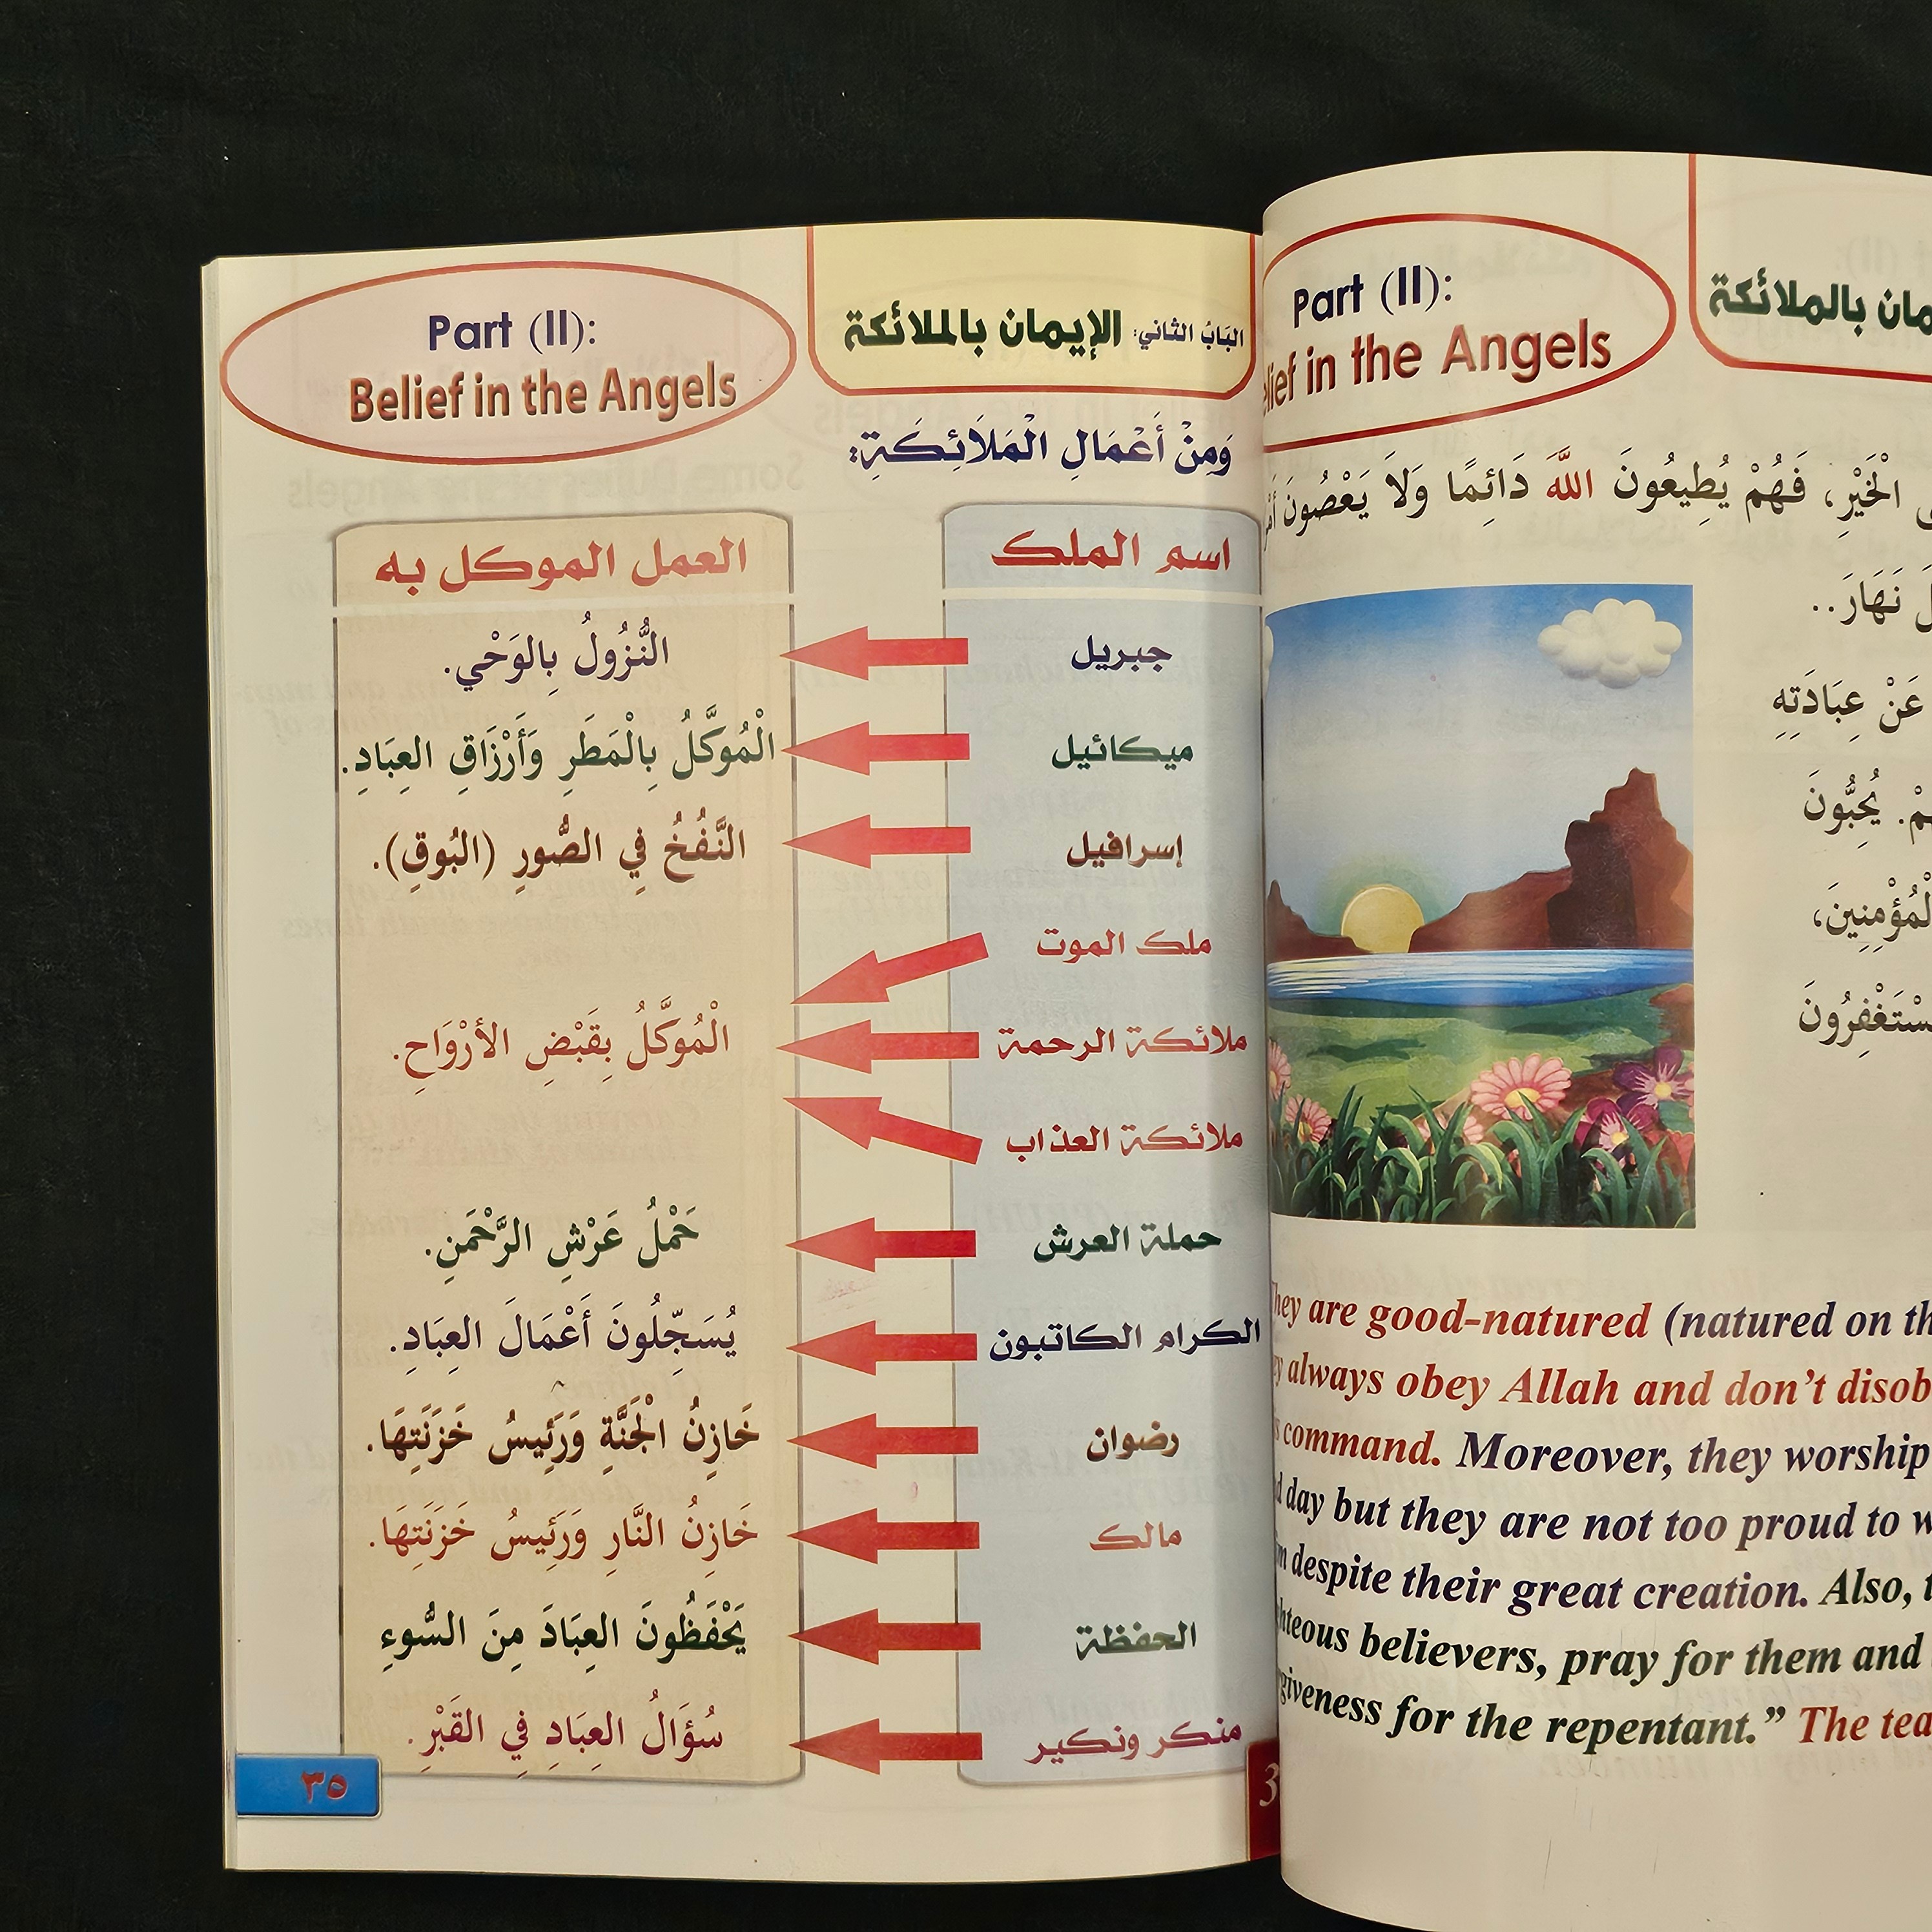 Part (II):
Belief in the Angels
البَابُ الثاني: الإيمان بالملائكة
وَمِنْ أَعْمَالِ الْمَلَائِكَةِ:
اسم الملك
العمل الموكل به
جبريل
النُّزُولُ بِالوَحْي.
ميكائيل
الْمُوَكَّلُ بِالْمَطَرِ وَأَرْزَاقِ العِبَادِ.
إسرافيل
النَّفْخُ فِي الصُّورِ (البُوقِ).
ملك الموت
ملائكة الرحمة
الْمُوَكَّلُ بِقَبْضِ الأرْوَاحِ.
ملائكة العذاب
حملة العرش
حَمْلُ عَرْشِ الرَّحْمَنِ.
الكرام الكاتبون
يُسَجِّلُونَ أَعْمَالَ العِبَادِ.
رضوان
خَازِنُ الْجَنَّةِ وَرَئِيسُ خَزَنَتِهَا.
مالك
خَازِنُ النَّارِ وَرَئِيسُ خَزَنَتِهَا.
الحفظة
يَحْفَظُونَ العِبَادَ مِنَ السُّوءِ
منكر ونكير
سُؤَالُ العِبَادِ فِي القَبْرِ.
٣٥
Part (II):
in the Angels
بالملائكة
الْخَيْرِ، فَهُمْ يُطِيعُونَ اللَّهَ دَائِمًا وَلاَ يَعْصُونَ
نَهَارَ..
عَنْ عِبَادَتِهِ
يُحِبُّونَ
They are good-natured (natured on
always obey Allah and don't
command. Moreover, they worship
day but they are not too proud to
despite their great creation. Also,
believers, pray for them and
for the repentant.” The